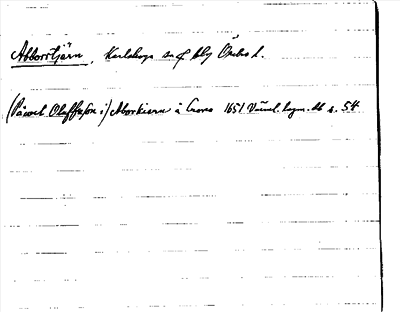 Abborrtjärn, Karlskoga sn o bsg Örebro l.
(Påwel Oluffzson i) Aborkiern å Crono 1651 Värml. lagm. db s. 54